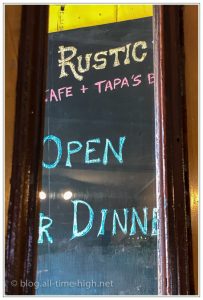 RUSTIC
CAFE + TAPA'S B
OPEN
R DINNE
© blog.all-time-high.net